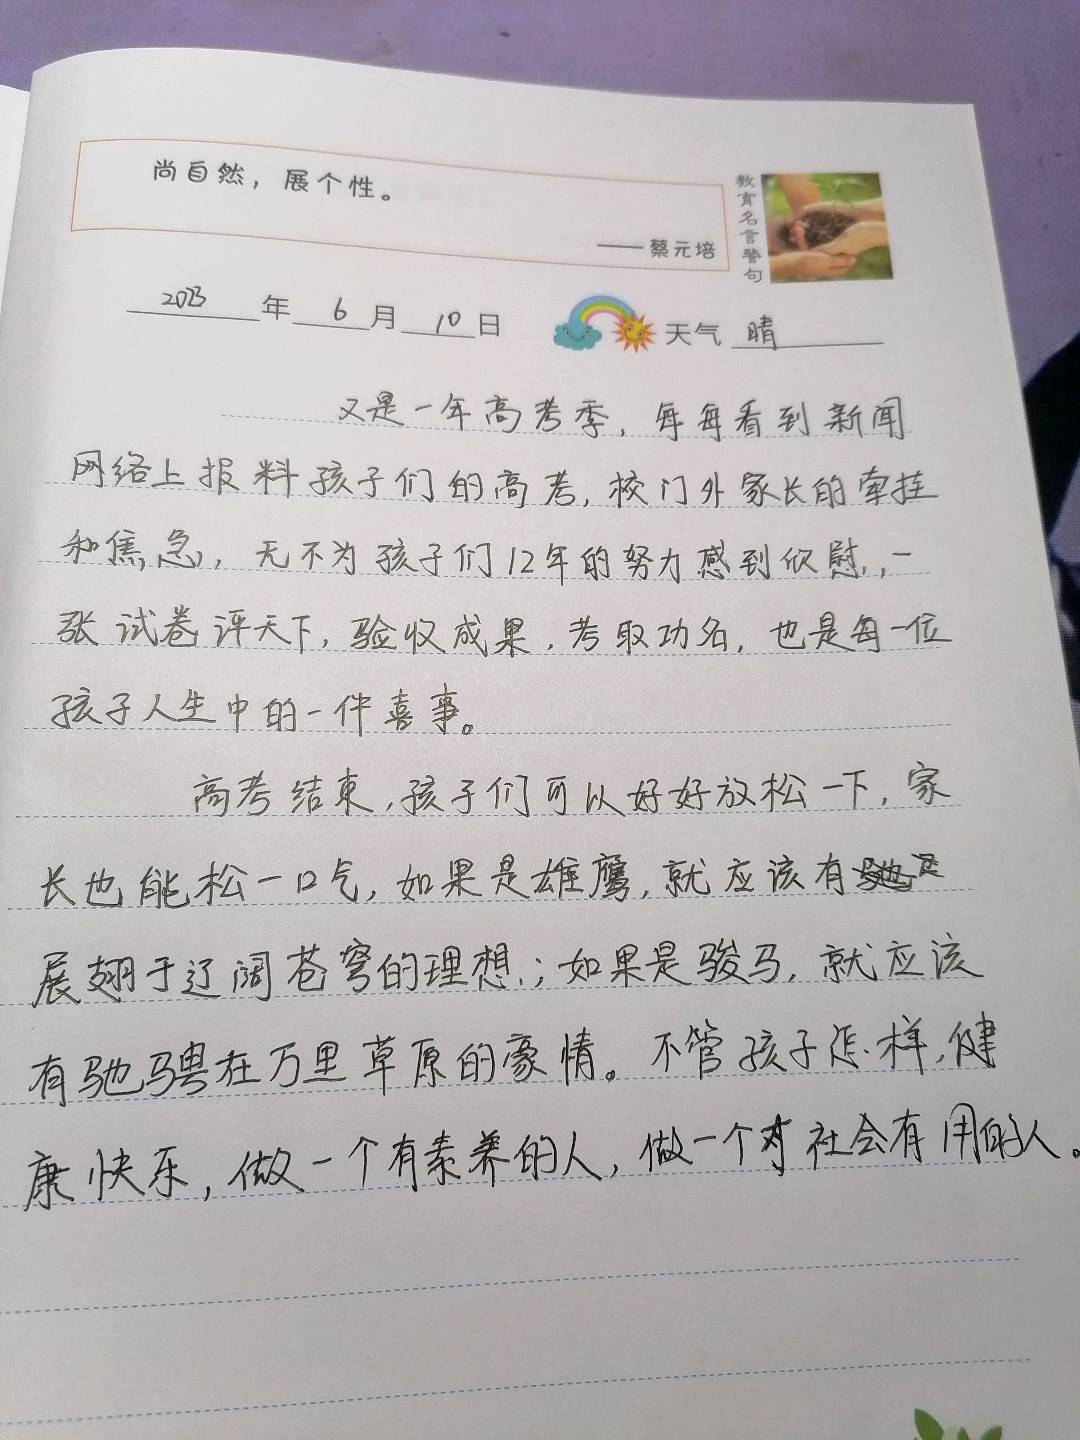 尚自然，展个性。
——蔡元培
教育名言警句
2023年6月10日 天气 晴
又是一年高考季，每每看到新闻
网络上报料孩子们的高考，校门外家长的牵挂
和焦急，无不为孩子们12年的努力感到欣慰，一
张试卷评天下，验收成果，考取功名，也是每一位
孩子人生中的一件喜事。
高考结束，孩子们可以好好放松一下，家
长也能松一口气，如果是雄鹰，就应该有
展翅于辽阔苍穹的理想；如果是骏马，就应该
有驰骋在万里草原的豪情。不管孩子怎样，健
康快乐，做一个有素养的人，做一个对社会有用的人。